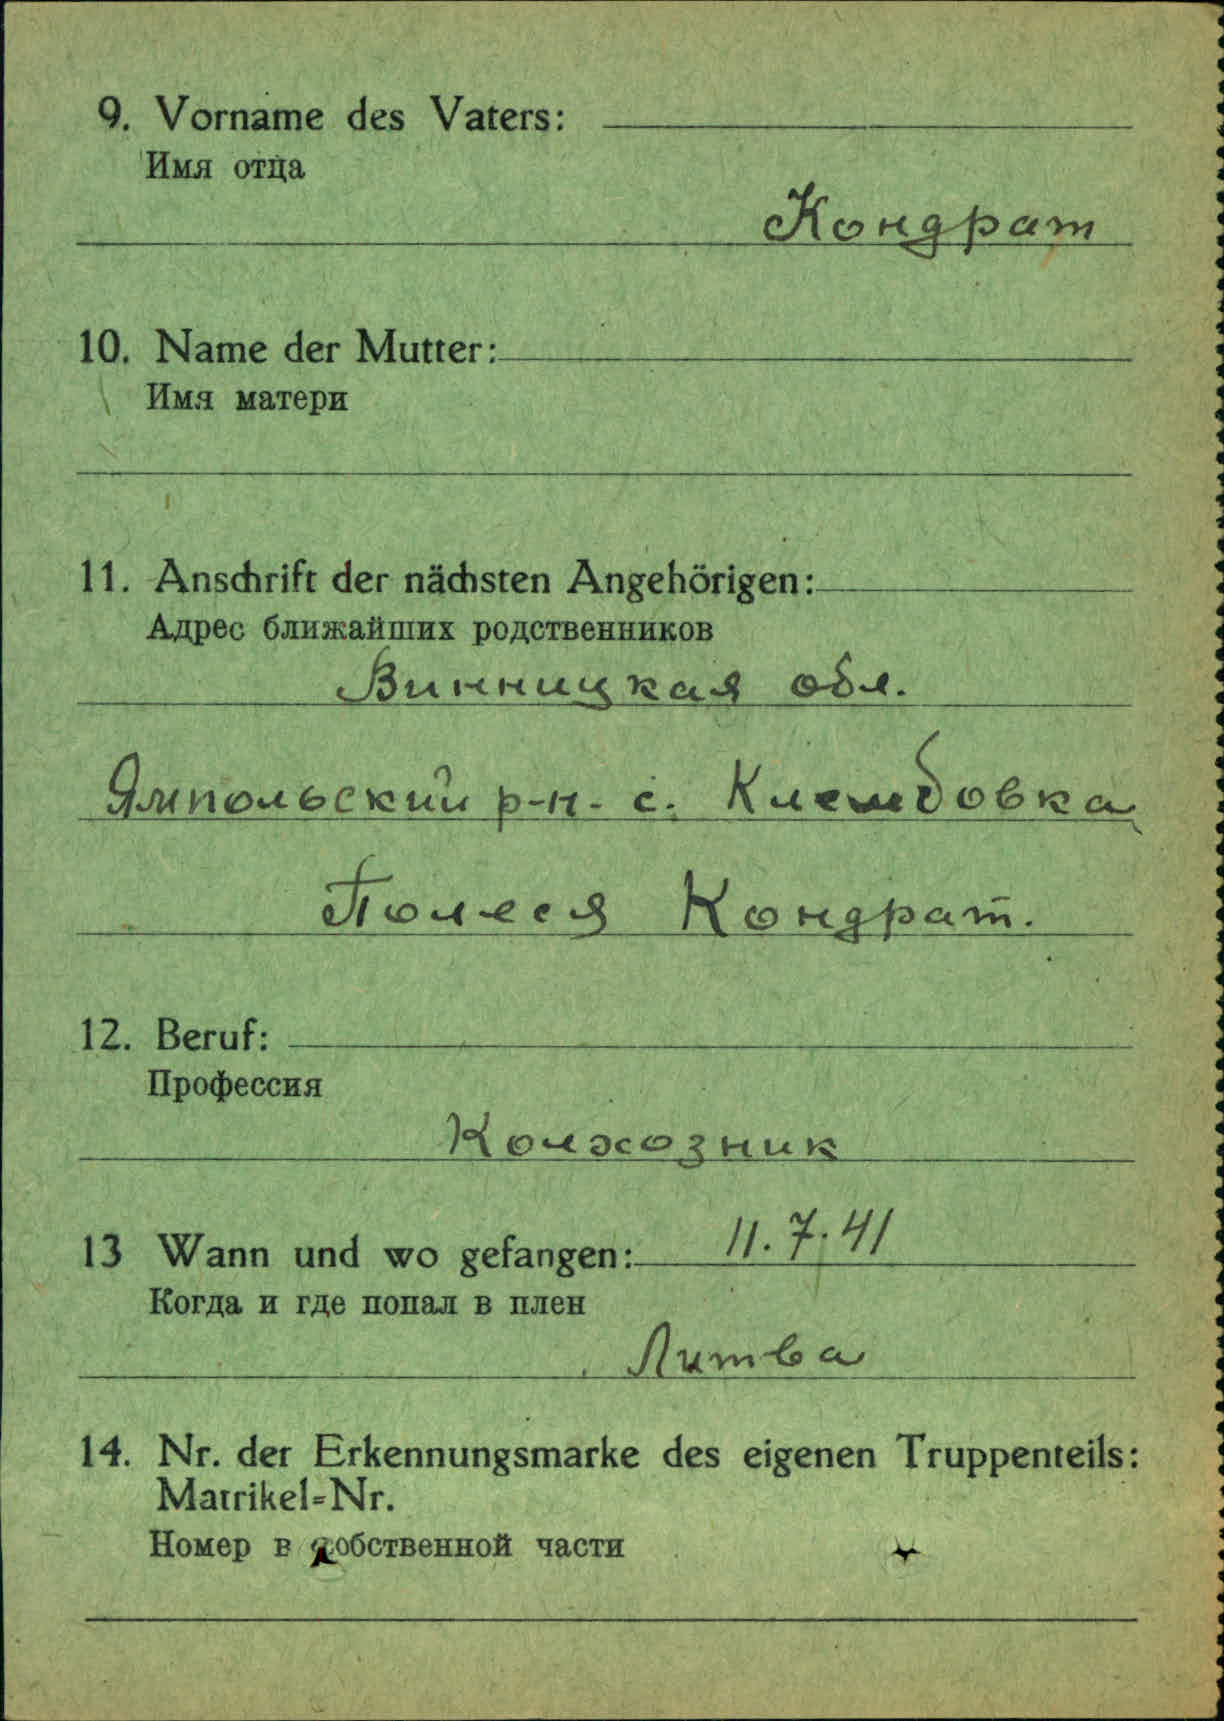 9. Vorname des Vaters:
Имя отца
Кондрат
10. Name der Mutter:
Имя матери
11. Anschrift der nächsten Angehörigen:
Адрес ближайших родственников
Винницкая обл.
Ямпольский р-н- с. Клембовка
Полеся Кондрат.
12. Beruf:
Профессия
Колхозник
13 Wann und wo gefangen: 11.7.41
Когда и где попал в плен
Литва
14. Nr. der Erkennungsmarke des eigenen Truppenteils:
Matrikel=Nr.
Номер в собственной части